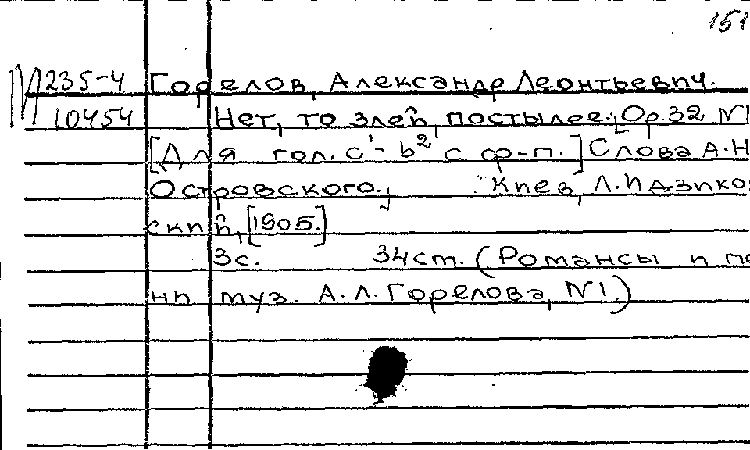 151
М 235-4 Горелов, Александр Леонтьевич.
10454 Нет, то злей, постылее. Op. 32 №1
[Для гол. c¹-b² с ф-п.] Слова А.Н
Островского. Киев, Л. Идзиков
ский, [1905.]
3с. 34см. (Романсы и пе
ни муз. А.Л. Горелова, №1.)